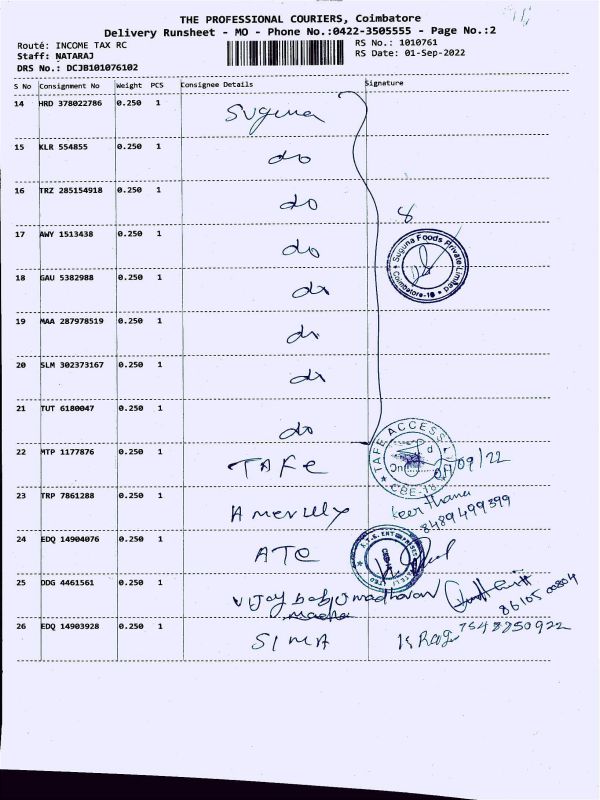 THE PROFESSIONAL COURIERS, Coimbatore
Delivery Runsheet - MO - Phone No.:0422-3505555 - Page No.:2
Route: INCOME TAX RC RS No.: 1010761
Staff: NATARAJ RS Date: 01-Sep-2022
DRS No.: DCJB101076102
S No Consignment No Weight PCS Consignee Details Signature
14 HRD 378022786 0.250 1 Suguna
15 KLR 554855 0.250 1 do
16 TRZ 285154918 0.250 1 do
8
17 AWY 1513438 0.250 1 do
Suguna Foods Private Limited
Coimbatore-18
18 GAU 5382988 0.250 1 do
19 MAA 287978519 0.250 1 do
20 SLM 302373167 0.250 1 do
21 TUT 6180047 0.250 1 do
22 MTP 1177876 0.250 1 TAFE
TAFE ACCESS
CBE-18
09/22
23 TRP 7861288 0.250 1
Keerthana
8489499399
24 EDQ 14904076 0.250 1 ATE
25 DDG 4461561 0.250 1 Vijay babu madhavan
26 EDQ 14903928 0.250 1 SIMA